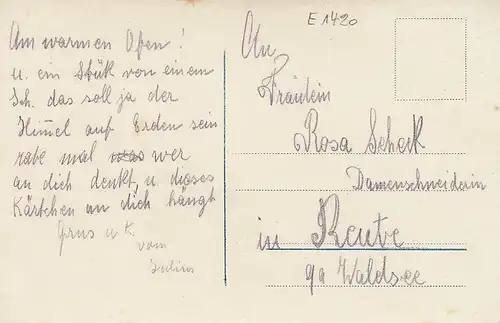 E 1420
Am warmen Ofen!
u. ein Stük von einem
Sch. das soll ja der
Himel auf Erden sein
rate mal was wer
an dich denkt, u dises
Kärtchen an dich hängt
Grus u K.
vom
Julius
An
Fräulein
Rosa Scheck
Damenschneiderin
in Reute
Waldsee